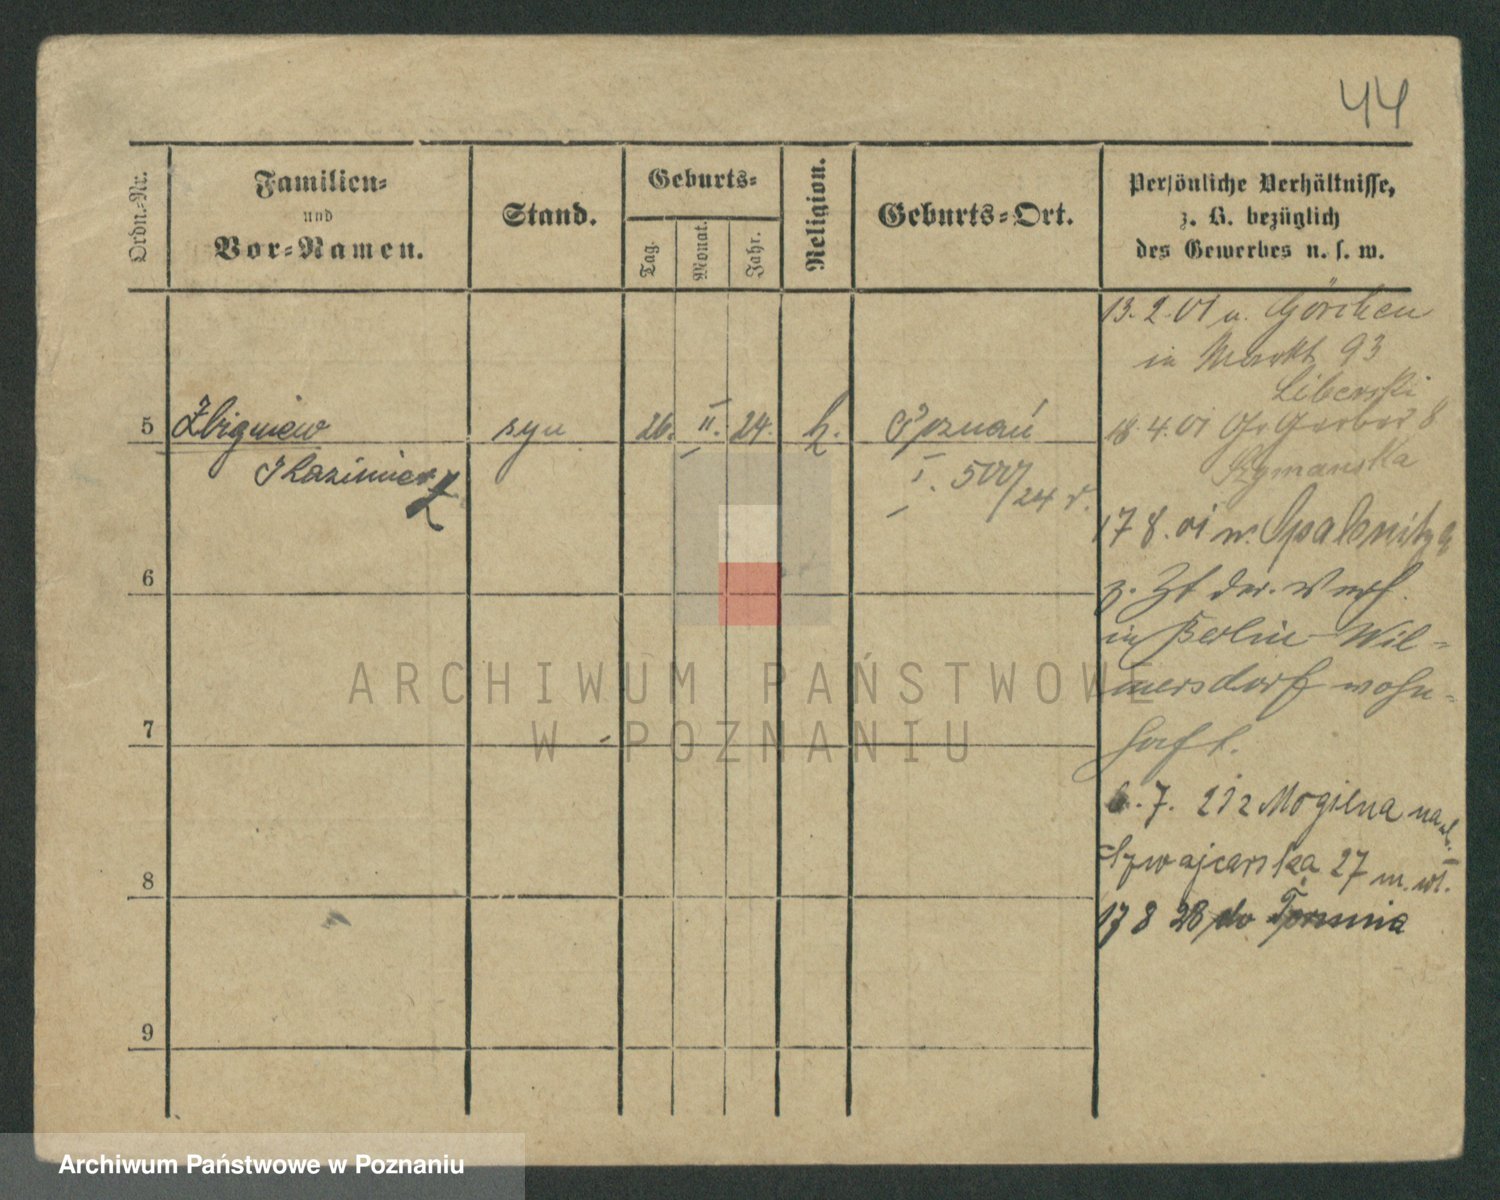 44
Ordn.-Nr.
Familien-
und
Vor-Namen.
Stand.
Geburts-
Tag.
Monat.
Jahr.
Religion.
Geburts-Ort.
Persönliche Verhältnisse,
z. B. bezüglich
des Gewerbes u. s. w.
13. 2. 01 n. Görchen
in Markt 93
Liberski
5 Zbigniew syn 26. II. 24. k. Poznań
18. 4. 01 Gr Gerber 8
Szymanska
Kazimierz
I. 500/24 r.
17 8. 01 n. Opalenitza
6
z. Zt der.
in Berlin-Wil-
mersdorf wohn-
7
haft.
6. 7. 21 z Mogilna na ul.
Szwajcarska 27 m. wł.
8
17 8 28 do Torunia
9
ARCHIWUM PAŃSTWOWE
W POZNANIU
Archiwum Państwowe w Poznaniu